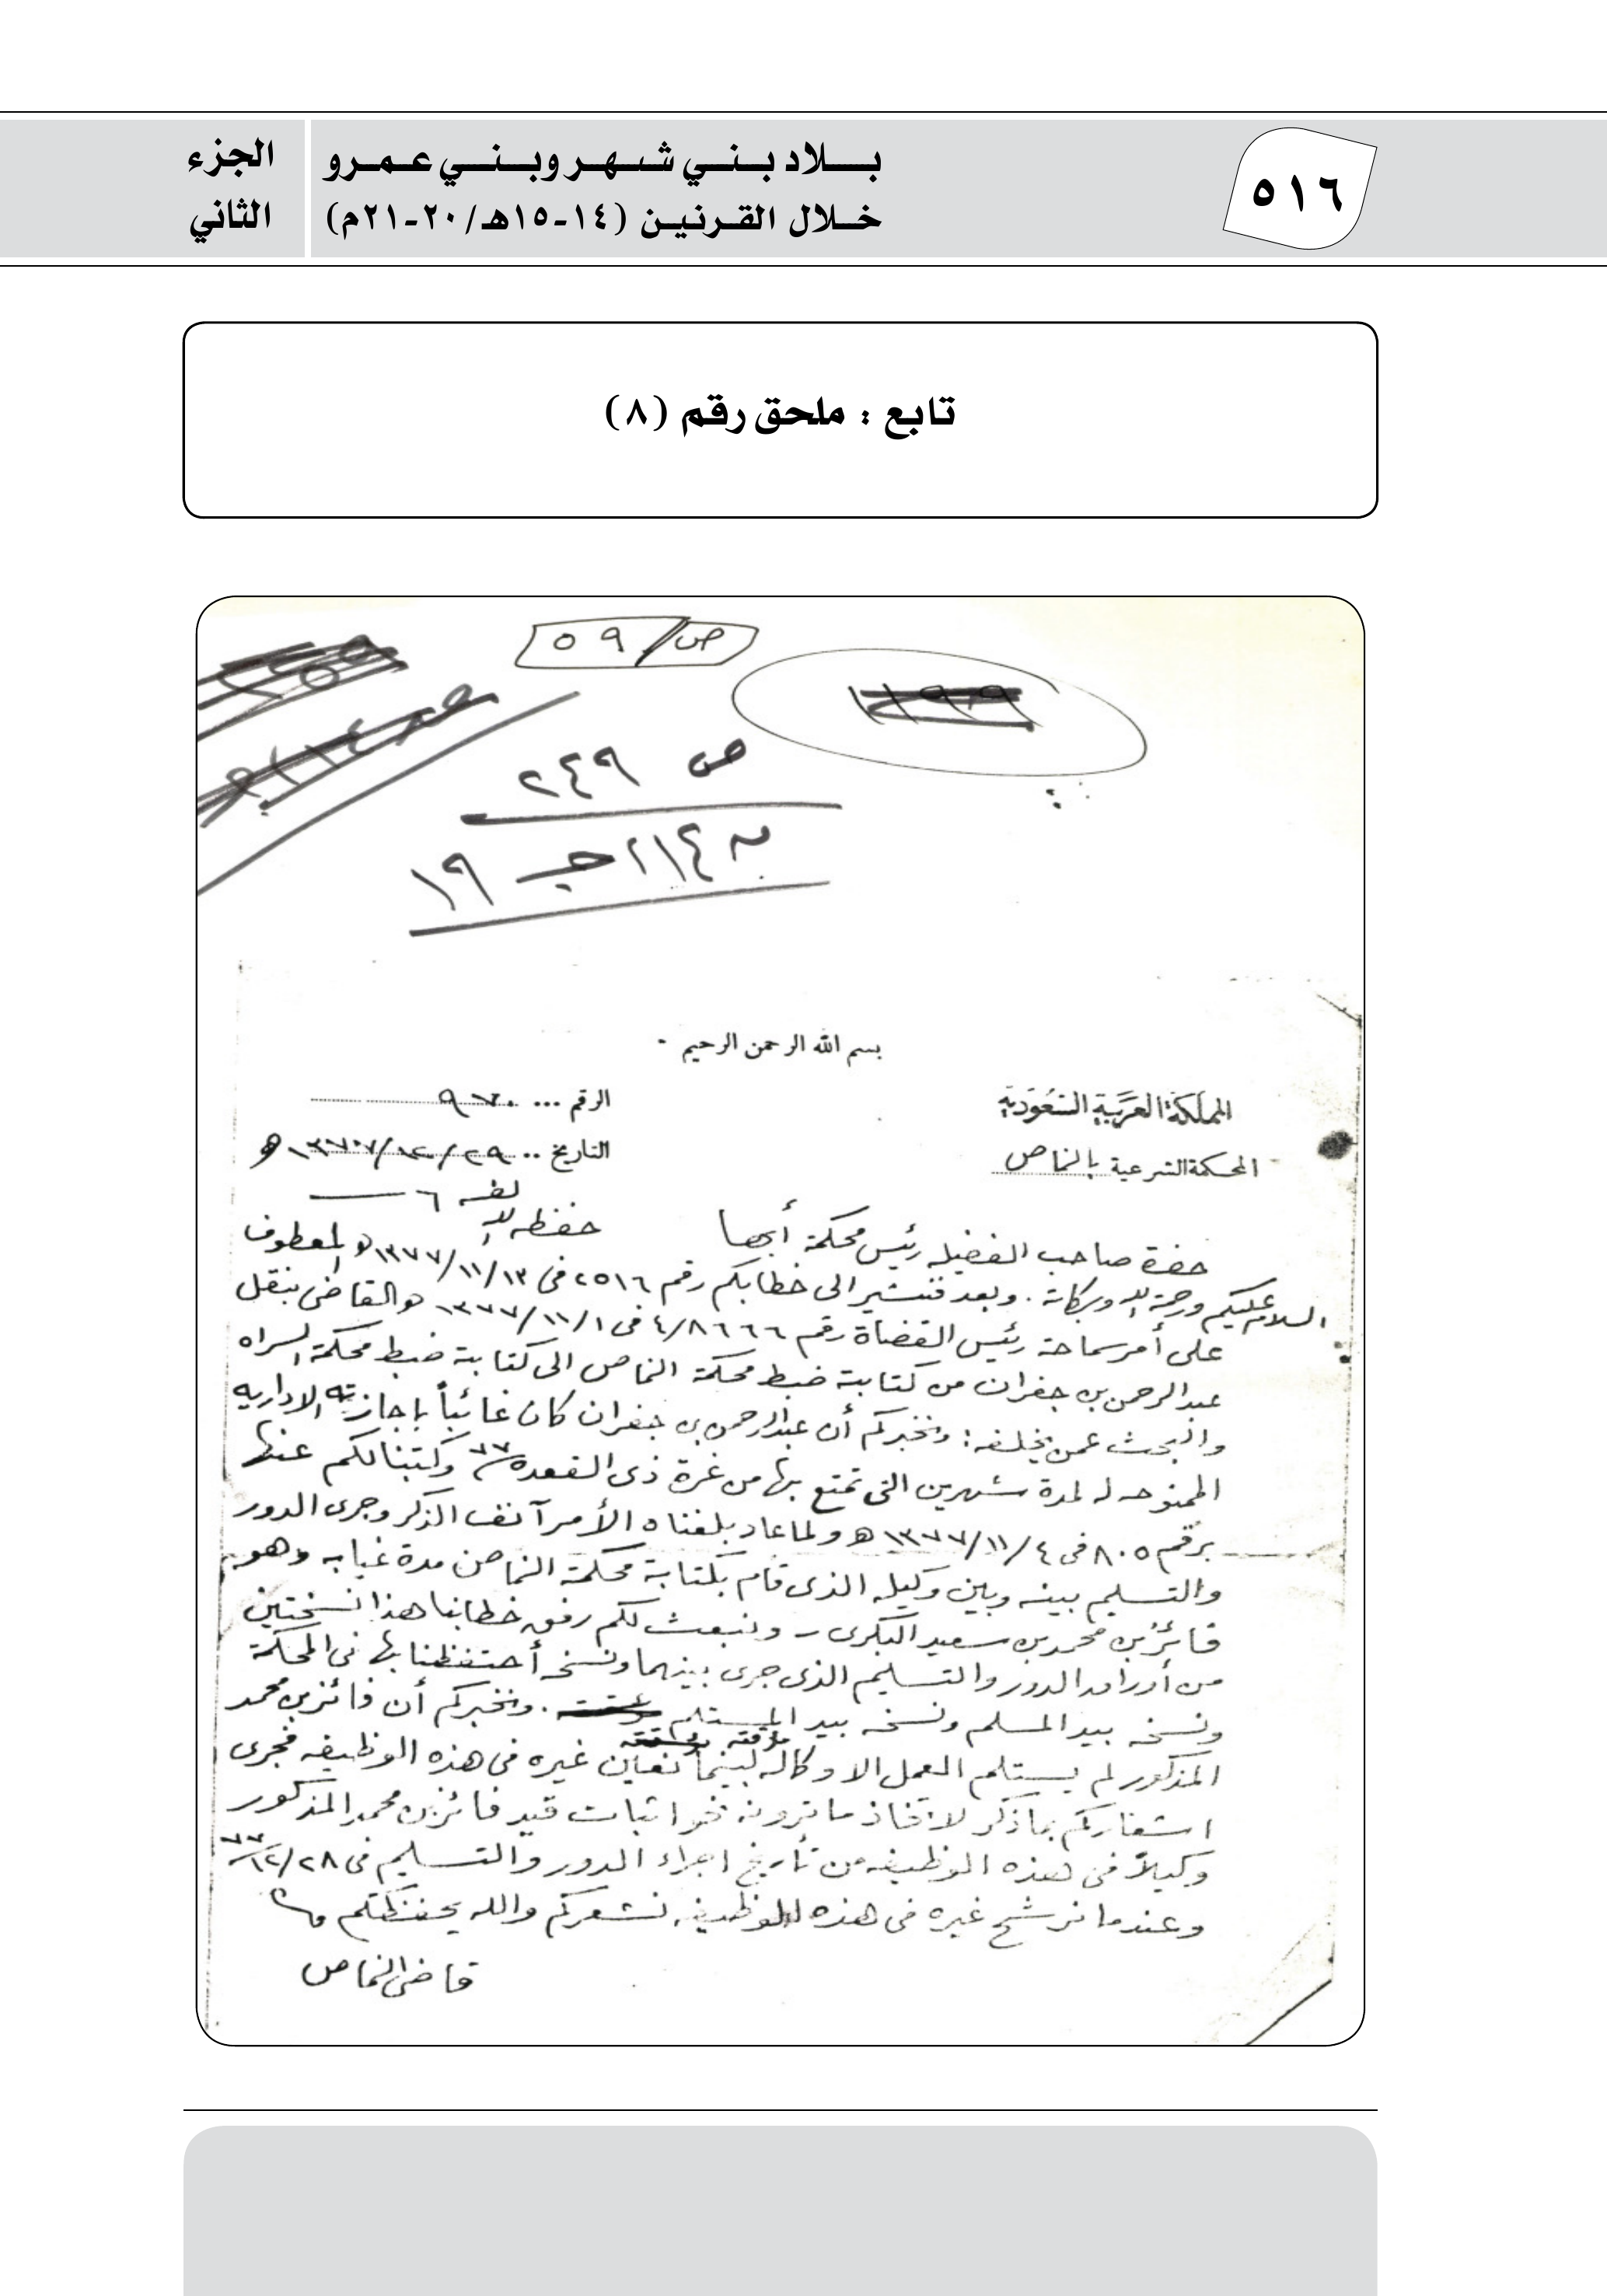 ٥١٦
بلاد بني شهر وبني عمرو
خلال القرنين (١٤-١٥هـ/٢٠-٢١م)
الجزء
الثاني
تابع : ملحق رقم (٨)
ص/٥٩
١١٩٩
ص ٢٤٩
٢١٤ جـ ١٩
بسم الله الرحمن الرحيم
المملكة العربية السعودية
المحكمة الشرعية بالنماص
الرقم ... ٩٧٠
التاريخ .. ٢٩/١٢/١٣٧٧هـ
لفه ٦
حضرة صاحب الفضيله رئيس محكمة أبها حفظه الله
السلام عليكم ورحمة الله وبركاته . وبعد فنشير الى خطابكم رقم ٢٥١٦ فى ١٣/١١/١٣٧٧هـ المعطوف
على أمر سماحة رئيس القضاة رقم ٤/٨٦٦٦ فى ١/١١/١٣٧٧هـ القاضى بنقل
عبدالرحمن بن جفران من كتابة ضبط محكمة النماص الى كتابة ضبط محكمة السراه
والبحث عمن يخلفه : ونخبركم أن عبدالرحمن بن جفران كان غائباً بإجازته الاداريه
الممنوحه له لمدة شهرين التى تمتع بها من غرة ذى القعدة ٧٧ وكتبنا لكم عنها
برقم ٨٠٥ فى ٤/١١/١٣٧٧هـ ولما عاد بلغناه الأمر آنف الذكر وجرى الدور
والتسليم بينه وبين وكيله الذى قام بكتابة محكمة النماص مدة غيابه وهو
فائز بن محمد بن سعيد البكرى - ونبعث لكم رفق خطابنا هذا نسختين
من أوراق الدور والتسليم الذى جرى بينهما ونسخه أحتفظنا بها فى المحكمة
ونسخه بيد المسلم ونسخه بيد المستلم . ونخبركم أن فائز بن محمد
المذكور لم يستلم العمل الا وكاله مؤقته لبينما نعين غيره فى هذه الوظيفه فجرى
اشعاركم بما ذكر لاتخاذ ما ترونه نحو اثبات قيد فائز بن محمد المذكور
وكيلاً فى هذه الوظيفه من تأريخ اجراء الدور والتسليم فى ٢٨/١٢/٧٧
وعندما نرشح غيره فى هذه الوظيفه نشعركم والله يحفظكم
قاضى النماص